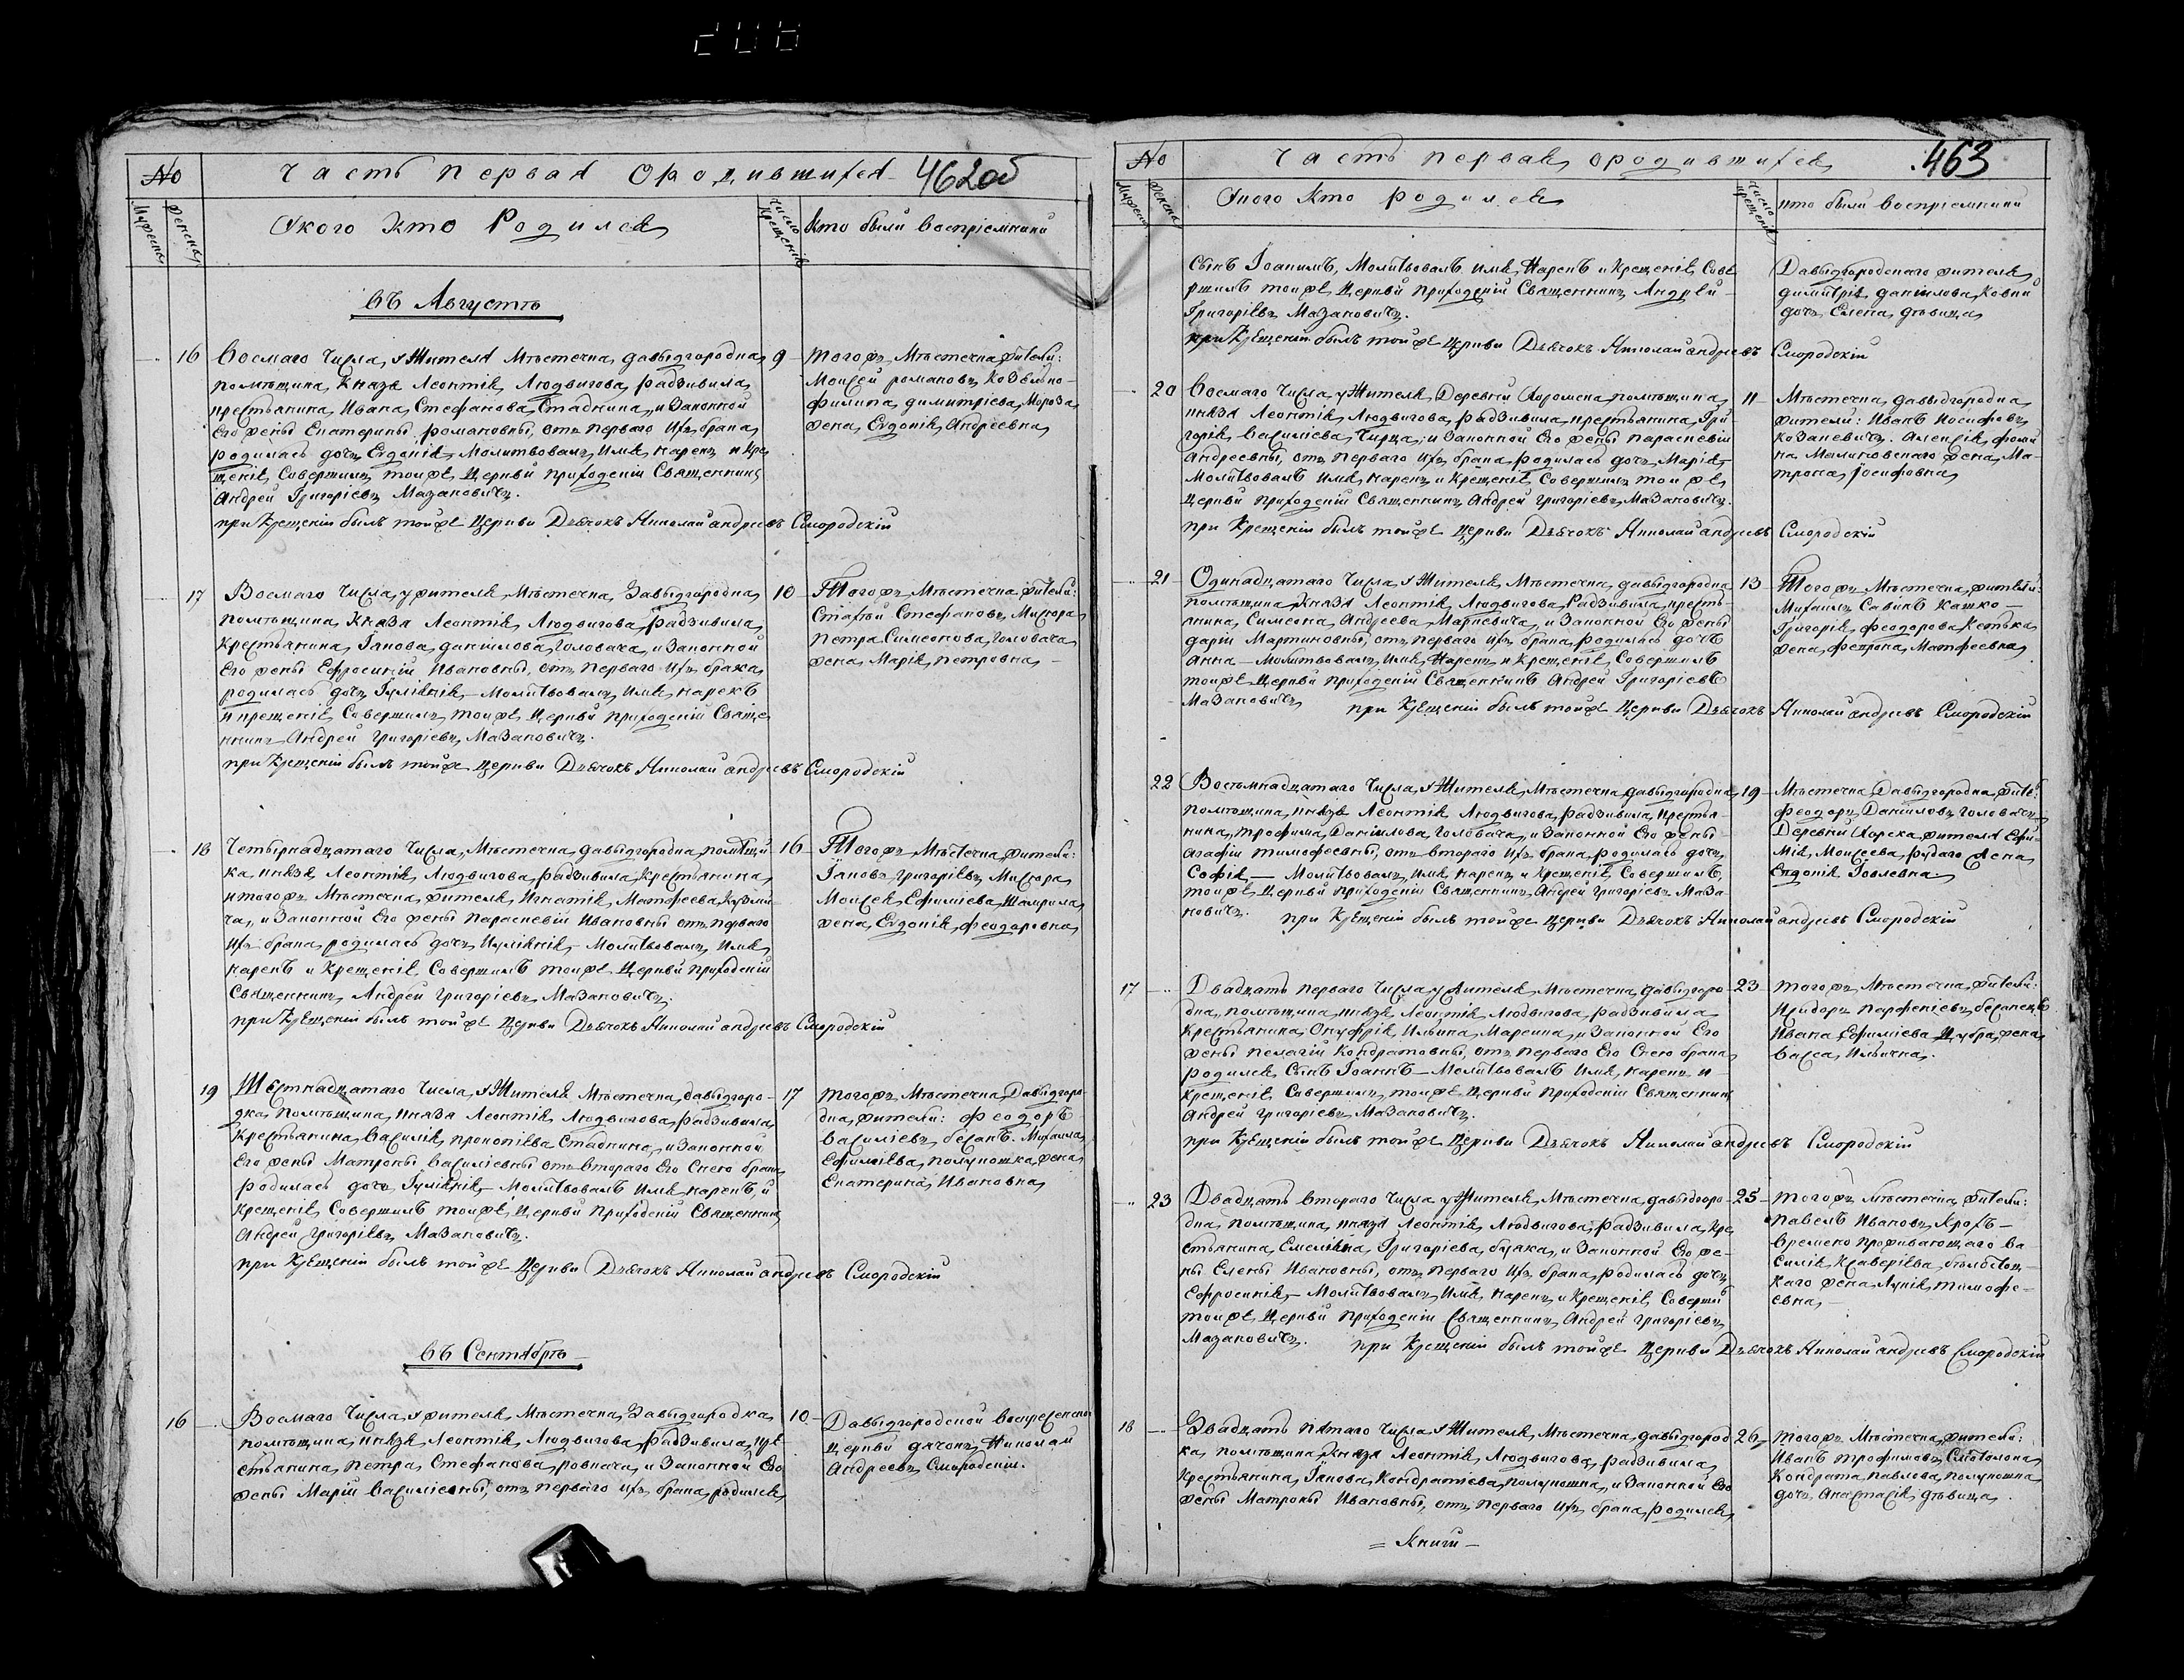 206
№
Часть первая О родившихся
462об
Мужеска
Женска
У кого кто Родился
Число Крещенія
Кто были воспріемники
въ Августѣ
16 Восмаго Числа, у Жителя Мѣстечка Давыдгородка
помѣщика, Князя Леонтія Людвигова Радзивила
крестьянина, Ивана Стефанова Стадника, и Законной
Его жены Екатерины Романовны, отъ перваго ихъ брака
родилась дочь Евдокія. Молитвовалъ, Имя нарекъ и Кре
щеніе Совершилъ тоя же Церкви приходскій Священникъ
Андрей Григоріевъ Мазановичъ.
при Крещеніи былъ тойже Церкви Дьячокъ Николай андреевъ Смородскій
9 тогожъ Мѣстечка жители:
Моисей романовъ
Филипа димитріева Мороза
жена, Евдокія Андреевна
17 Восмаго Числа, у жителя Мѣстечка Давыдгородка
помѣщика, Князя Леонтія Людвигова Радзивила
Крестьянина, Іакова даніилова Головача, и Законной
Его жены Ефросиніи Ивановны, отъ перваго ихъ брака
родилась дочь Іуліанія. Молитвовалъ, Имя нарекъ
и крещеніе Совершилъ тояже Церкви приходскій Свяще
нникъ Андрей Григоріевъ Мазановичъ.
при Крещеніи былъ тойже Церкви Дьячокъ Николай андреевъ Смородскій
10 Тогожъ Мѣстечка жители:
Стефановъ Мисюра
Петра Симеонова Головача
жена, Марія петровна
18 Четырнадцатаго Числа, Мѣстечка давыдгородка помѣщи
ка князя Леонтія Людвигова Радзивила Крестьянина
и тогожъ Мѣстечка жителя Игнатія Матфеева Кузми
ча, и Законной Его жены Параскевіи Ивановны отъ перваго
ихъ брака, родилась дочь Іуліанія. Молитвовалъ, Имя
нарекъ и Крещеніе Совершилъ тояже Церкви приходскій
Священникъ Андрей Григоріевъ Мазановичъ.
при Крещеніи былъ тойже Церкви Дьячокъ Николай андреевъ Смородскій
16 Тогожъ Мѣстечка жители:
Іаковъ Григоріевъ Мисюра
Моисея Ефиміева
жена, Евдокія Феодоровна
19 Шестнадцатаго Числа, у Жителя Мѣстечка давыдгоро-
дка, помѣщика, князя Леонтія Людвигова Радзивила
Крестьянина Василія прокопіева Стадника, и Законной
Его жены Матроны Василіевны отъ втораго Его Сжею брака
родилась дочь Іуліанія. Молитвовалъ Имя нарекъ, и
крещеніе Совершилъ тояже Церкви Приходскій Священникъ
Андрей Григоріевъ Мазановичъ.
при Крещеніи былъ тойже Церкви Дьячокъ Николай андреевъ Смородскій
17 тогожъ Мѣстечка Давыдгоро-
дка, жители: Феодоръ
Василіевъ Михаила
Ефиміева, полуношка, жена
Екатерина Ивановна
въ Сентябрѣ
16 Восмаго Числа, у жителя Мѣстечка Давыдгородка
помѣщика, князя Леонтія Людвигова Радзивила, кре-
стьянина, петра Стефанова и Законной Его
жены Маріи Василіевны, отъ перваго ихъ брака, родился
10 Давыдгородской воскресенской
Церкви дячокъ, Николай
Андреевъ Смородскій.
№
Часть первая, о родившихся
463
Мужеска
Женска
Укого Кто родился
Число крещенія
кто были воспріемники
Сынъ Іоакимъ, Молитвовалъ имя Нарекъ и Крещеніе Сове
ршилъ тояже Церкви приходскій Священникъ Андрей
Григоріевъ Мазановичъ.
при Крещеніи былъ тойже Церкви Дьячокъ Николай андреевъ Смородскій
Давыдгородскаго жителя
димитрія даніилова
дочь Елена, дѣвица
20 Восмаго Числа, у Жителя Деревни Хоромска помѣщика
князя Леонтія Людвигова Радзивила, крестьянина Гри-
горія Василіева и Законной Его жены Параскевіи
Андреевны, отъ перваго ихъ брака родилась дочь Марія
Молитвовалъ имя, нарекъ и Крещеніе Совершилъ тоя же
Церкви приходскій Священникъ Андрей Григоріевъ Мазановичъ.
при Крещеніи былъ тойже Церкви Дьячокъ Николай андреевъ Смородскій
11 Мѣстечка давыдгородка
жители: Иванъ Иосифовъ
Козакевичъ. Алексія фоми
на Малиновскаго жена, Ма-
трона Іосифовна
21 Одинадцатаго Числа, у Жителя Мѣстечка давыдгородка
помѣщика, Князя Леонтія Людвигова Радзивила, кресть-
янина, Симеона Андреева и Законной Его жены
даріи Мартиновны, отъ перваго ихъ брака, родилась дочь
Анна. Молитвовалъ, Имя, Нарекъ и Крещеніе Совершилъ
тояже Церкви приходскій Священникъ Андрей Григоріевъ
Мазановичъ
при Крещеніи былъ тойже Церкви Дьячокъ Николай андреевъ Смородскій
13 Тогожъ Мѣстечка, жители:
Михаилъ Савинъ Кашко
Григорія Феодорова
жена, Матфеевна
22 Восемнадцатаго Числа, у Жителя Мѣстечка давыдгородка
помѣщика, князя Леонтія Людвигова Радзивила, крестья-
нина, Трофима Даніилова Головача, и Законной Его жены
Агафіи тимофеевны, отъ втораго ихъ брака, родилась дочь
Софія. Молитвовалъ, Имя нарекъ и Крещеніе Совершилъ,
тояже Церкви приходскій Священникъ Андрей Григоріевъ Маза-
новичъ.
при Крещеніи былъ тойже Церкви Дьячокъ Николай андреевъ Смородскій
19 Мѣстечка Давыдгородка жите:
Феодоръ Даніиловъ Головачъ
Деревни Хорска, жителя Ефи-
мія Моисеева жена
Евдокія Іовлевна.
17 Двадцать перваго Числа, у жителя Мѣстечка давыдгоро-
дка, помѣщика, князя Леонтія Людвигова Радзивила
Крестьянина, Онуфрія Ильина и Законной Его
жены Пелагіи Кондратовны, отъ перваго Его Сжею брака
родился Сынъ Іоаннъ. Молитвовалъ Имя нарекъ и
Крещеніе Совершилъ тояже Церкви Приходскій Священникъ
Андрей Григоріевъ Мазановичъ.
при Крещеніи былъ тойже Церкви Дьячокъ Николай андреевъ Смородскій
23 тогожъ Мѣстечка жители:
Исидоръ Парфеніевъ
Ивана Ефиміева жена
Васса Ильична.
23 Двадцать втораго Числа у Жителя Мѣстечка давыдгоро-
дка, помѣщика, князя Леонтія Людвигова Радзивила, кре
стьянина, Емеліана Григоріева и Законной Его же-
ны Елены Ивановны, отъ перваго ихъ брака, родилась дочь
Ефросинія. Молитвовалъ, Имя нарекъ, и Крещеніе Соверши
тояже Церкви приходскій Священникъ Андрей Григоріевъ
Мазановичъ.
при Крещеніи былъ тойже Церкви Дьячокъ Николай андреевъ Смородскій
25 тогожъ Мѣстечка жители:
Павелъ Ивановъ
Времено проживающаго Ва
силія
жена тимофе-
евна,
18 Двадцать пятаго Числа, у Жителя Мѣстечка давыдгород
ка, помѣщика, Князя Леонтія Людвигова Радзивила
Крестьянина, Іакова Кондратіева полуношка, и Законной Его
жены Матроны Ивановны, отъ перваго ихъ брака, родился
26 тогожъ Мѣстечка жители:
Иванъ Трофимовъ
Кондрата Павлова полуношка
дочь Анастасія дѣвица.
= Книги -